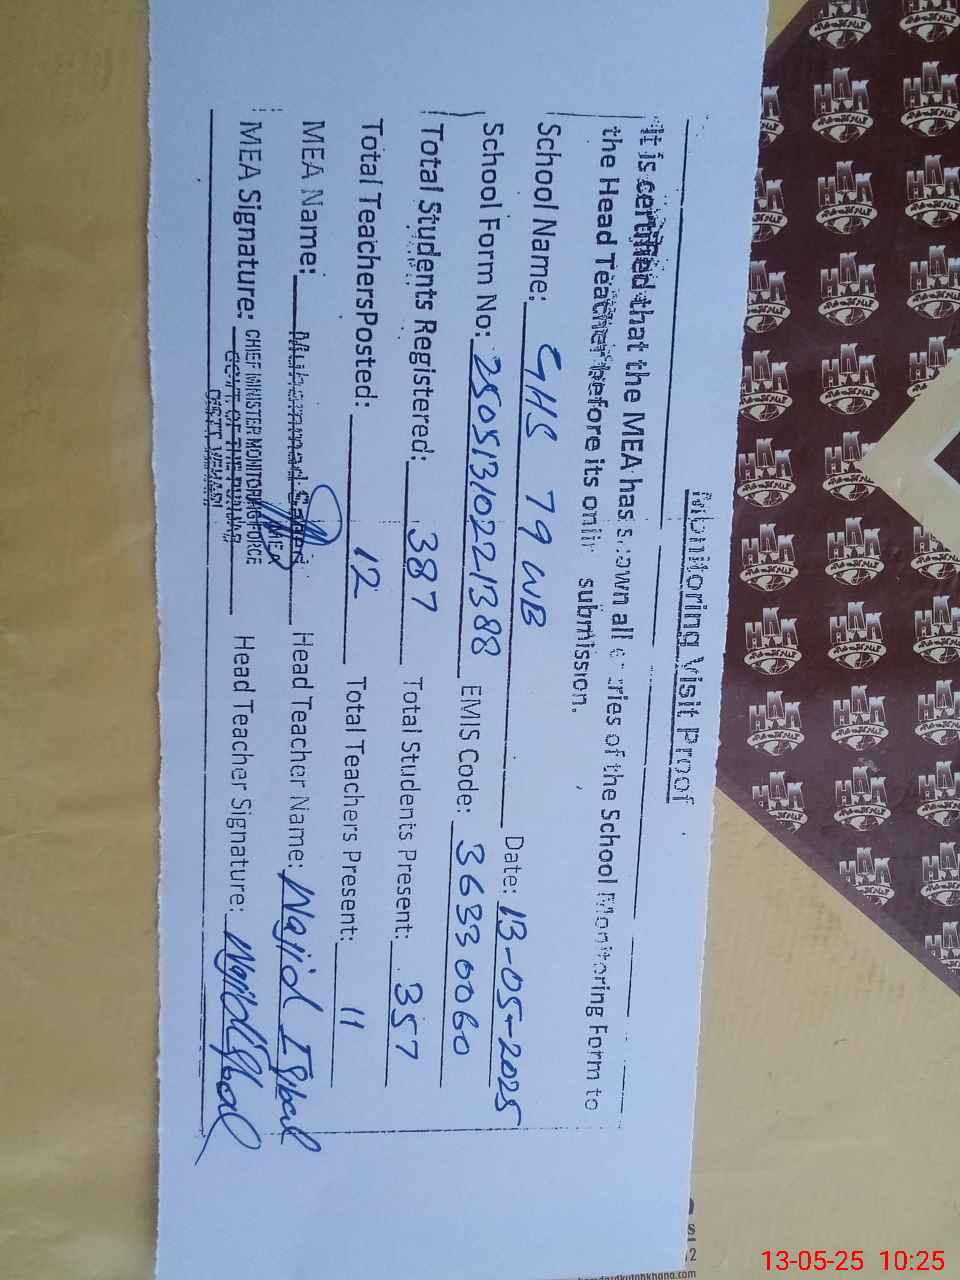 Monitoring Visit Proof
It is certified that the MEA has shown all entries of the School Monitoring Form to
the Head Teacher before its online submission.
School Name: GHS 79 WB Date: 13-05-2025
School Form No: 25051310221388 EMIS Code: 36330060
Total Students Registered: 387 Total Students Present: 357
Total TeachersPosted: 12 Total Teachers Present: 11
MEA Name: Muhammad Head Teacher Name: Wajid Iqbal
MEA Signature: Head Teacher Signature: Wajid Iqbal
MEA
CHIEF MINISTER MONITORING FORCE
GOVT OF THE PUNJAB
DISTT VEHARI
HKK
13-05-25 10:25